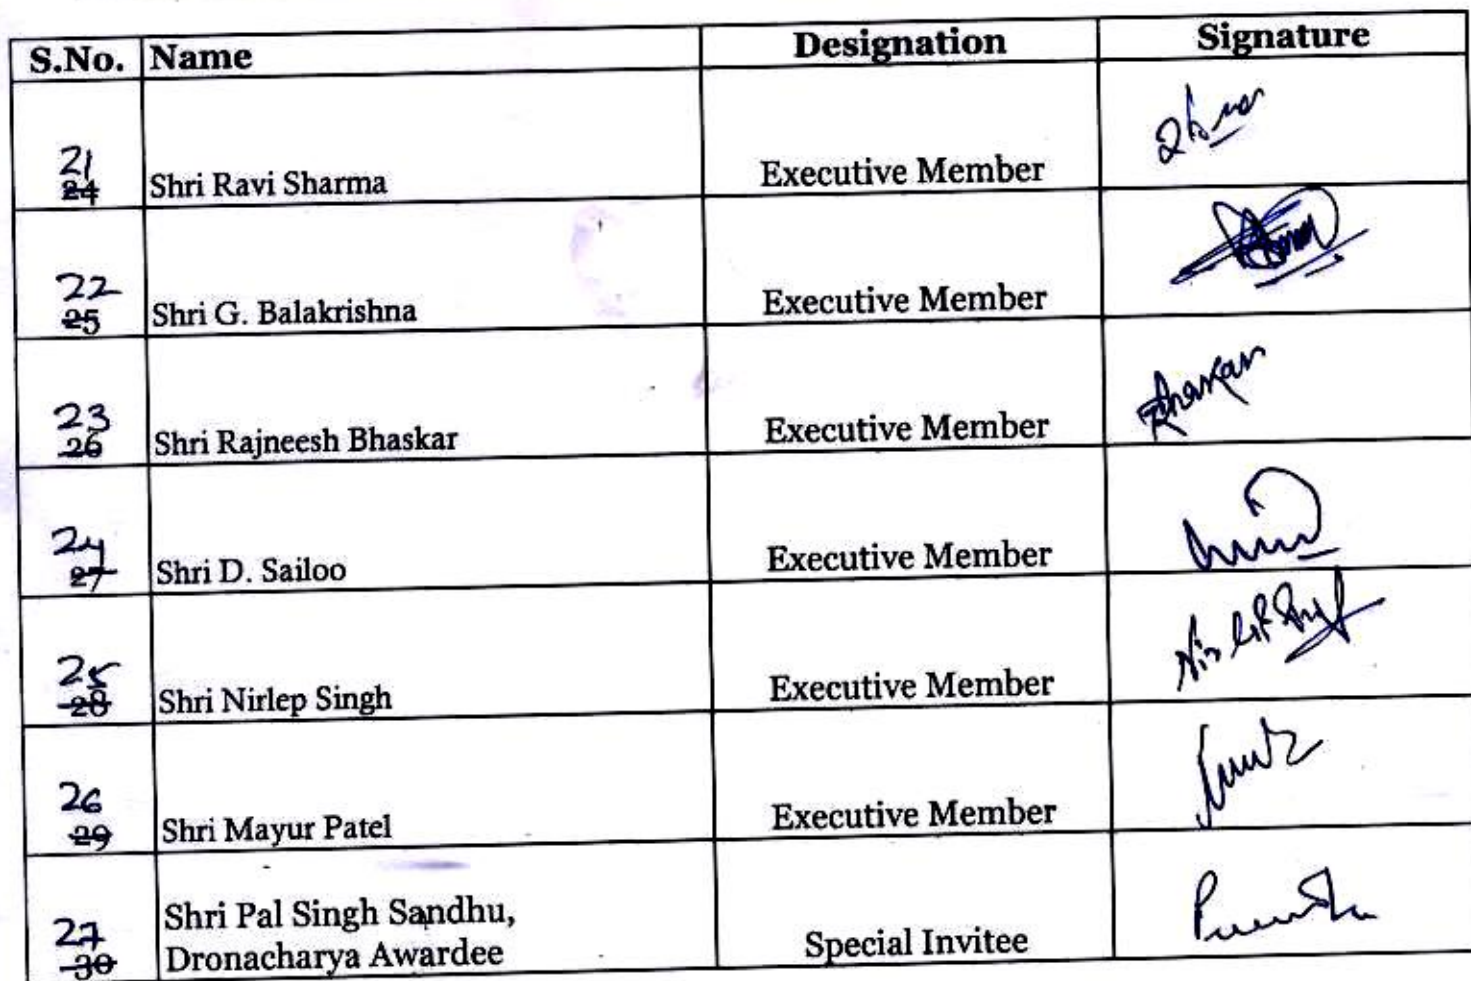 S.No. Name Designation Signature
21
24 Shri Ravi Sharma Executive Member
22
25 Shri G. Balakrishna Executive Member
23
26 Shri Rajneesh Bhaskar Executive Member
24
27 Shri D. Sailoo Executive Member
25
28 Shri Nirlep Singh Executive Member
26
29 Shri Mayur Patel Executive Member
27
30 Shri Pal Singh Sandhu,
Dronacharya Awardee Special Invitee